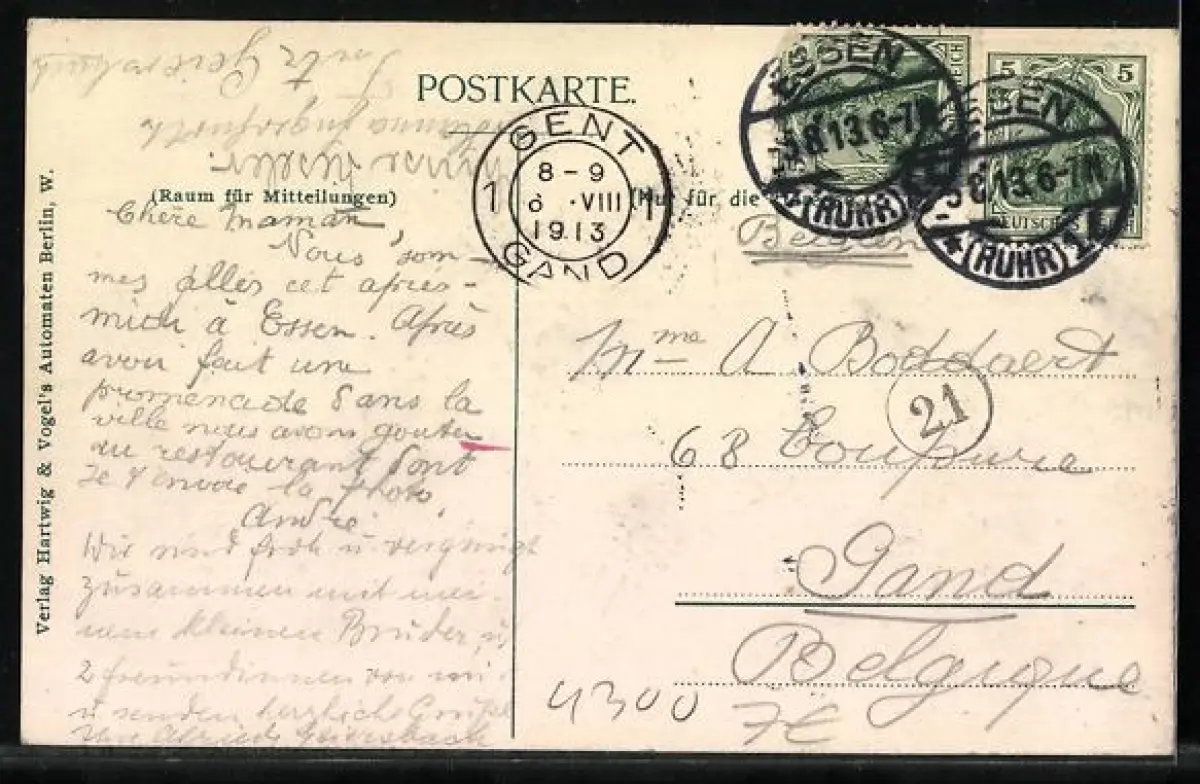 POSTKARTE.
(Raum für Mitteilungen)
(Nur für die
Verlag Hartwig & Vogel's Automaten Berlin, W.
GENT
8-9
VIII
1913
1 1
GAND
ESSEN
5.8.13.6-7N
(RUHR)
ESSEN
5.8.13.6-7N
*(RUHR)1*
5 5
DEUTSCHES REICH
Belgien
Chère Maman,
Nous som-
mes allés cet après-
midi à Essen. Après
avoir fait une
promenade dans la
ville nous avons goûter
au restaurant dont
je t'envoie la photo.
André
Wir sind froh u. vergnügt
zusammen mit mei-
nem kleinen Bruder u.
2 freundinnen von mir
u. senden herzliche Grüße
von
Mme A Boddaert
68 Coupure
Gand
Belgique
21
4300
7E